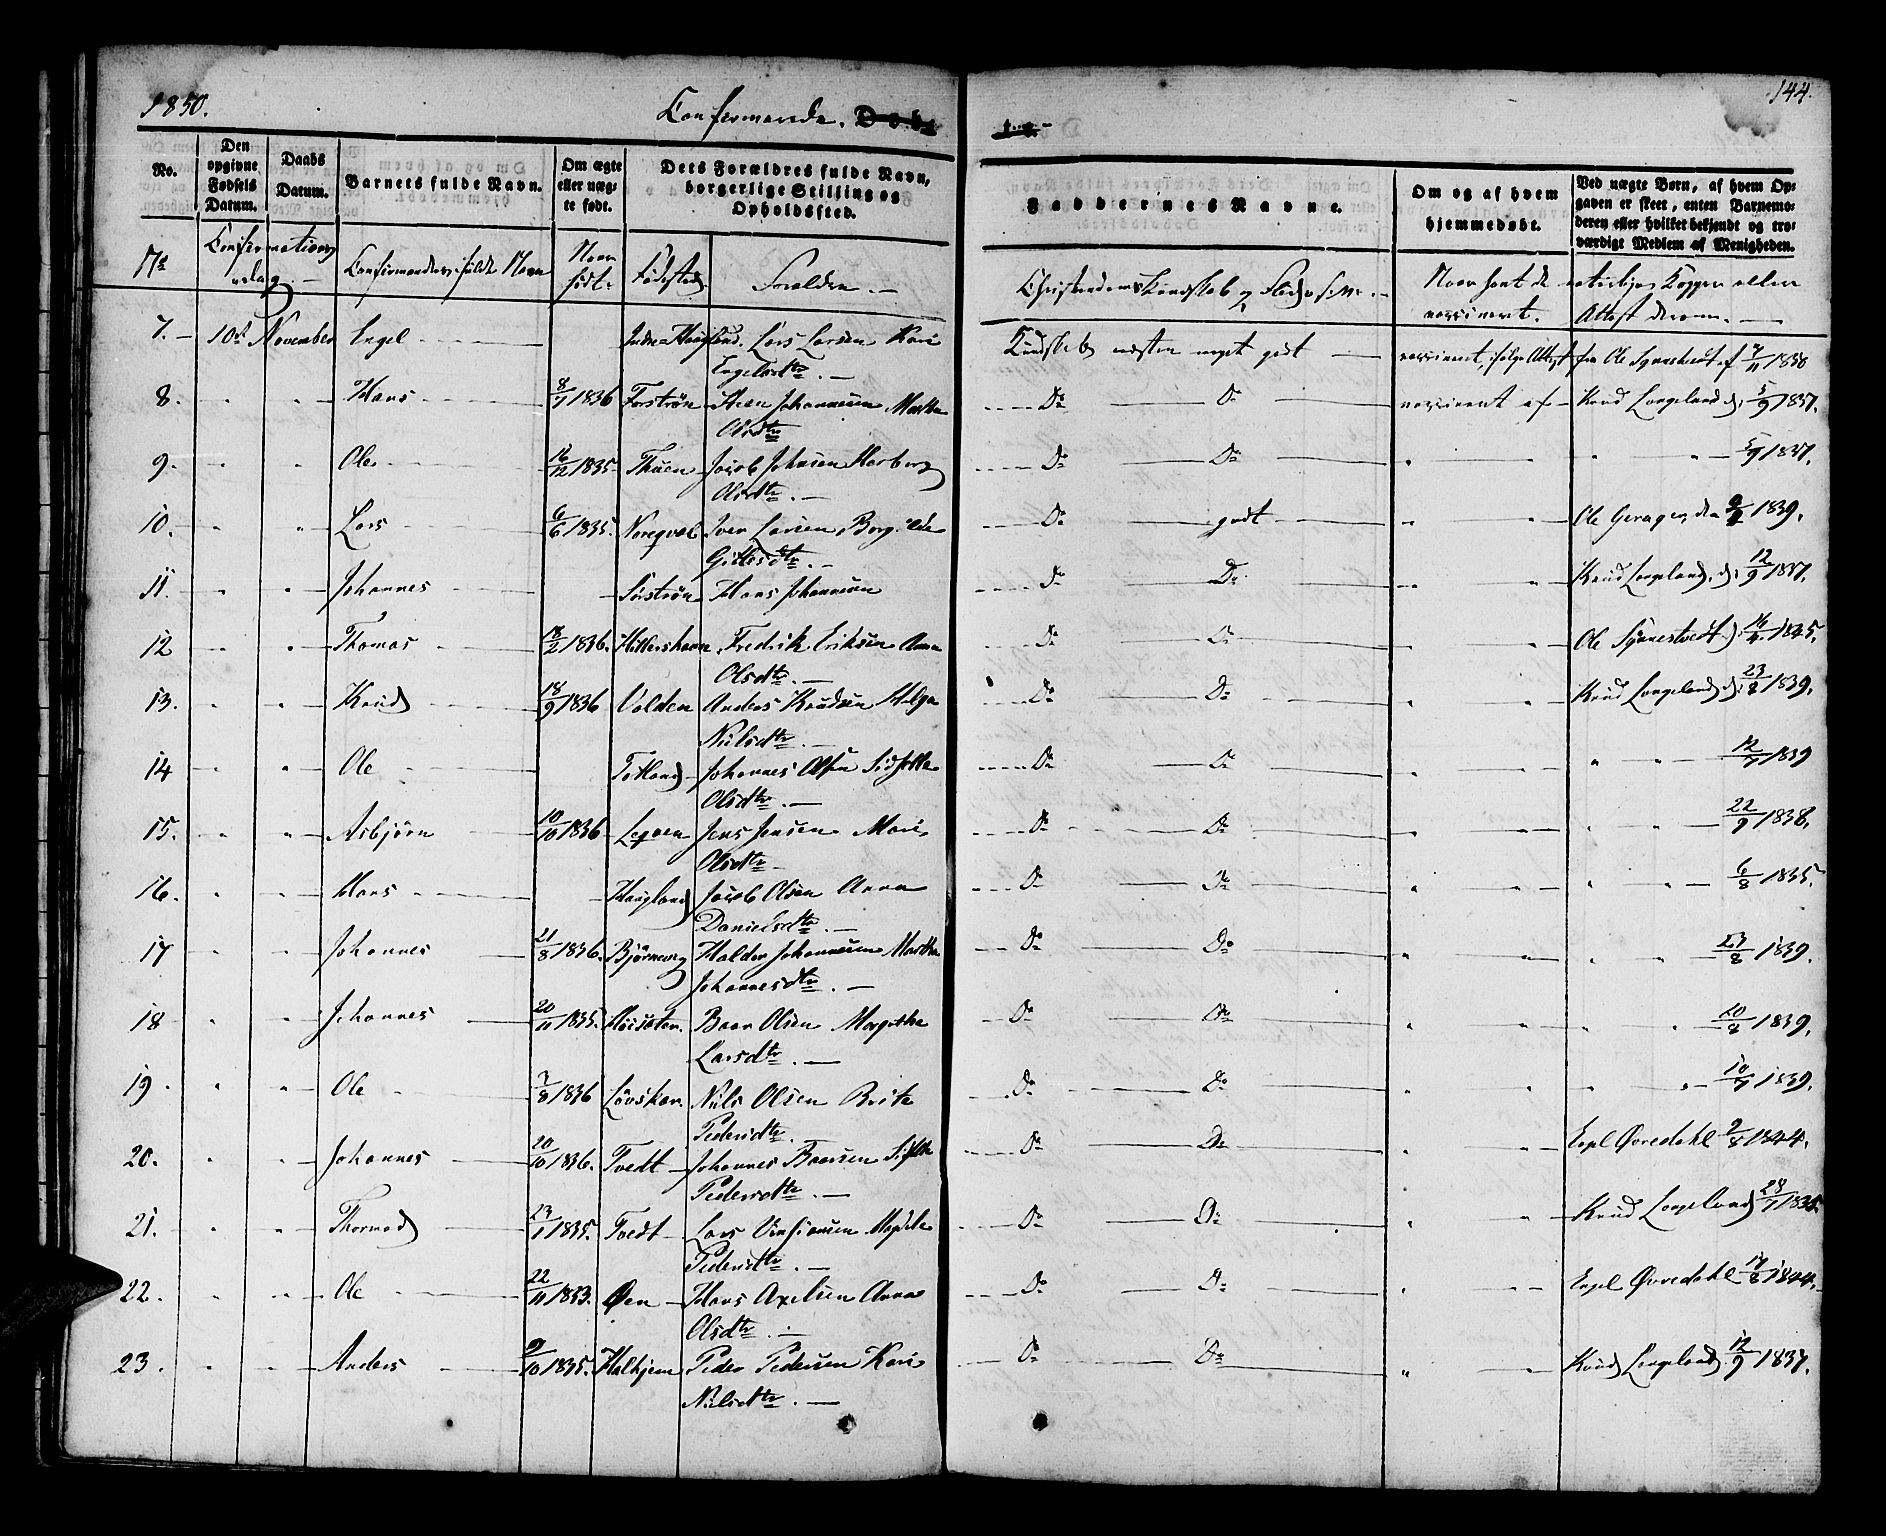 1850.
Confirmerede.
Døbte.
144.
No.
Den opgivne Fødsels Datum.
Daabs Datum.
Barnets fulde Navn.
Om ægte eller uægte født.
Dets Forældres fulde Navn, borgerlige Stilling og Opholdssted.
Faddernes Navne.
Om og af hvem hjemmedøbt.
Ved uægte Børn, af hvem Opgaven er skeet, enten Barnemoderen eller hvilket bekjendt og troværdigt Medlem af Menigheden.
No
Confirmations
dag
Confirmandens fulde Navn
Naar
født
Fødested
Forældre
Christendoms Kundskab og Flid
Naar havt de naturlige Kopper eller
vaccineret.
Attest derom.
7. 10de November Engel Indre-Haugland Lars Larsen Kari
Engelsdtr. Kundskab næsten meget godt vaccineret, ifølge Attest fra Ole Synnestvedt af 7/11 1850
8. Hans 8/1 1836 Steen Johannesen Martha
Olsdtr. Do Do vaccineret af Knud Langeland d. 5/9 1837.
9. Ole 16/12 1835 Thuen Jacob Johnsen Marberg
Olsdtr. Do Do 5/9 1837.
10. Lars 6/6 1835. Iver Larsen
Do godt Ole 1839.
11. Johannes Hans Johannesen Do Do Knud Langeland, d. 12/9 1837.
12 Thomas 1836. Fredrik Eriksen Anna
Olsdtr. Do Do Ole Synnestvedt 16/4 1845.
13. Knud 18/9 1836 Valden Anders Knudsen Helga
Nielsdtr. Do Do Knud Langeland d. 23/8 1839.
14 Ole Totland Johannes Olsen
Olsdtr. Do Do 12/7 1839
15. Asbjørn 10/10 1836 Jens Jensen Mari
Olsdtr. Do Do 22/9 1838.
16. Hans Haugland Jacob Olsen Anna
Danielsdtr. Do Do 6/8 1835.
17 Johannes 21/8 1836. Haldor Johannesen Martha
Johannesdtr. Do Do 1839.
18 Johannes 20/11 1835. Baar Olsen Magretha
Larsdtr. Do Do 20/8 1839.
19. Ole 7/8 1836 Niels Olsen Brita
Pedersdtr. Do Do 10/7 1839.
20. Johannes 20/10 1836. Tvedt Johannes Baarsen
Pedersdtr. Do Do Engel Øvredahl 9/8 1844.
21. Thormod 23/1 1835. Tvedt Lars
Pedersdtr. Do Do Knud Langeland
22. Ole 22/11 1833. Øen Hans Axelsen Anna
Olsdtr. Do Do Engel Øvredahl 1844.
23. Anders 9/10 1835. Halhjem Peder Pedersen Kari
Nielsdtr. Do Do Knud Langeland 12/9 1837.